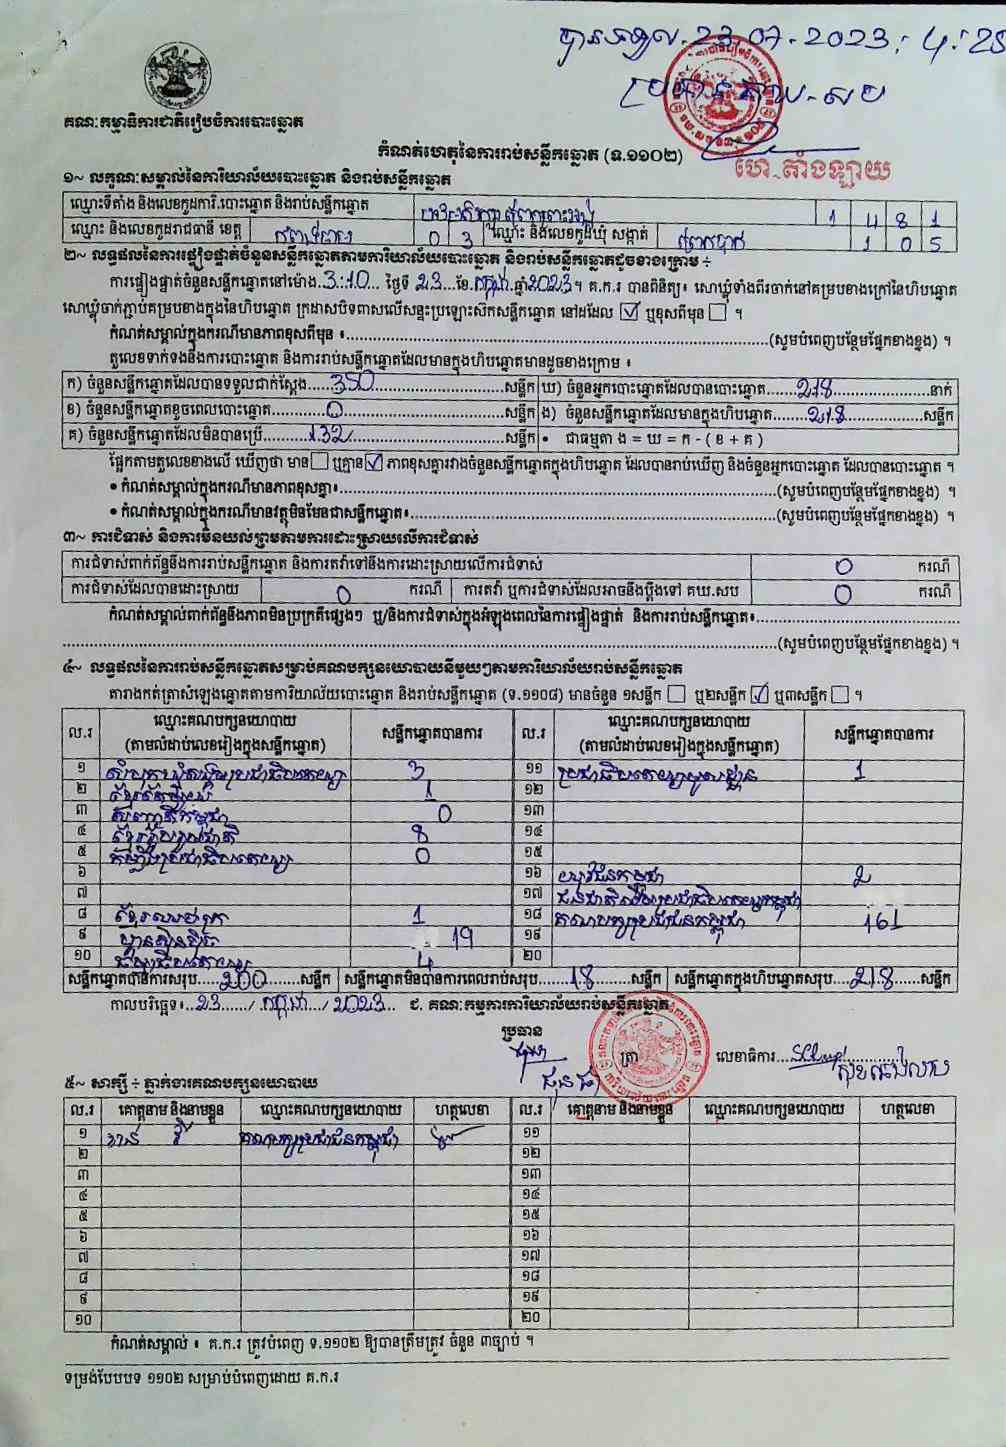 បានទទួល 23.07.2023, 4:25
ប្រធានគឃ.សប
គណៈកម្មាធិការជាតិរៀបចំការបោះឆ្នោត
ហេ តាំងឡាយ
កំណត់ហេតុនៃការរាប់សន្លឹកឆ្នោត (ទ.១១០២)
១~ លក្ខណៈសម្គាល់នៃការិយាល័យបោះឆ្នោត និងរាប់សន្លឹកឆ្នោត
ឈ្មោះទីតាំង និងលេខកូដការិ.បោះឆ្នោត និងរាប់សន្លឹកឆ្នោត 1 4 8 1
ឈ្មោះ និងលេខកូដរាជធានី ខេត្ត កំពង់ចាម 0 3 ឈ្មោះ និងលេខកូដឃុំ សង្កាត់ 1 0 5
២~ លទ្ធផលនៃការផ្ទៀងផ្ទាត់ចំនួនសន្លឹកឆ្នោតតាមការិយាល័យបោះឆ្នោត និងរាប់សន្លឹកឆ្នោតដូចខាងក្រោម ÷
ការផ្ទៀងផ្ទាត់ចំនួនសន្លឹកឆ្នោតនៅម៉ោង...3:10... ថ្ងៃទី 23 ខែ កក្កដា ឆ្នាំ 2023 ។ គ.ក.រ បានពិនិត្យ៖ សោឃ្លុំទាំងពីរចាក់នៅគម្របខាងក្រៅនៃហិបឆ្នោត
សោឃ្លុំចាក់ភ្ជាប់គម្របខាងក្នុងនៃហិបឆ្នោត ក្រដាសបិទពាសលើសន្ទះប្រឡោះស៊កសន្លឹកឆ្នោត នៅដដែល ☑ ឬខុសពីមុន ☐ ។
កំណត់សម្គាល់ក្នុងករណីមានភាពខុសពីមុន ៖ (សូមបំពេញបន្ថែមផ្នែកខាងខ្នង) ។
តួលេខទាក់ទងនឹងការបោះឆ្នោត និងការរាប់សន្លឹកឆ្នោតដែលមានក្នុងហិបឆ្នោតមានដូចខាងក្រោម ៖
ក) ចំនួនសន្លឹកឆ្នោតដែលបានទទួលជាក់ស្តែង 350 សន្លឹក ឃ) ចំនួនអ្នកបោះឆ្នោតដែលបានបោះឆ្នោត 218 នាក់
ខ) ចំនួនសន្លឹកឆ្នោតខូចពេលបោះឆ្នោត 0 សន្លឹក ង) ចំនួនសន្លឹកឆ្នោតដែលមានក្នុងហិបឆ្នោត 218 សន្លឹក
គ) ចំនួនសន្លឹកឆ្នោតដែលមិនបានប្រើ 132 សន្លឹក • ជាធម្មតា ង = ឃ = ក - ( ខ + គ )
ផ្អែកតាមតួលេខខាងលើ ឃើញថា មាន ☐ ឬគ្មាន ☑ ភាពខុសគ្នារវាងចំនួនសន្លឹកឆ្នោតក្នុងហិបឆ្នោត ដែលបានរាប់ឃើញ និងចំនួនអ្នកបោះឆ្នោត ដែលបានបោះឆ្នោត ។
• កំណត់សម្គាល់ក្នុងករណីមានភាពខុសគ្នា៖ (សូមបំពេញបន្ថែមផ្នែកខាងខ្នង) ។
• កំណត់សម្គាល់ក្នុងករណីមានវត្ថុមិនមែនជាសន្លឹកឆ្នោត៖ (សូមបំពេញបន្ថែមផ្នែកខាងខ្នង) ។
៣~ ការជំទាស់ និងការមិនយល់ព្រមតាមការដោះស្រាយលើការជំទាស់
ការជំទាស់ពាក់ព័ន្ធនឹងការរាប់សន្លឹកឆ្នោត និងការតវ៉ាទៅនឹងការដោះស្រាយលើការជំទាស់ 0 ករណី
ការជំទាស់ដែលបានដោះស្រាយ 0 ករណី ការតវ៉ា ឬការជំទាស់ដែលអាចនឹងប្តឹងទៅ គឃ.សប 0 ករណី
កំណត់សម្គាល់ពាក់ព័ន្ធនឹងភាពមិនប្រក្រតីផ្សេងៗ ឬ/និងការជំទាស់ក្នុងអំឡុងពេលនៃការផ្ទៀងផ្ទាត់ និងការរាប់សន្លឹកឆ្នោត៖
(សូមបំពេញបន្ថែមផ្នែកខាងខ្នង) ។
៤~ លទ្ធផលនៃការរាប់សន្លឹកឆ្នោតសម្រាប់គណបក្សនយោបាយនីមួយៗតាមការិយាល័យរាប់សន្លឹកឆ្នោត
តារាងកត់ត្រាសំឡេងឆ្នោតតាមការិយាល័យបោះឆ្នោត និងរាប់សន្លឹកឆ្នោត (ទ.១១០៨) មានចំនួន ១សន្លឹក ☐ ឬ២សន្លឹក ☑ ឬ៣សន្លឹក ☐ ។
ល.រ ឈ្មោះគណបក្សនយោបាយ (តាមលំដាប់លេខរៀងក្នុងសន្លឹកឆ្នោត) សន្លឹកឆ្នោតបានការ ល.រ ឈ្មោះគណបក្សនយោបាយ (តាមលំដាប់លេខរៀងក្នុងសន្លឹកឆ្នោត) សន្លឹកឆ្នោតបានការ
១ សំបុកឃ្មុំសង្គមប្រជាធិបតេយ្យ 3 ១១ ប្រជាធិបតេយ្យមូលដ្ឋាន 1
២ ខ្មែរតែមួយ 1 ១២
៣ សញ្ជាតិកម្ពុជា 0 ១៣
៤ ខ្មែររួបរួមជាតិ 8 ១៤
៥ កម្លាំងប្រជាធិបតេយ្យ 0 ១៥
៦ ១៦ យុវជនកម្ពុជា 2
៧ ១៧ ជនជាតិដើមប្រជាធិបតេយ្យកម្ពុជា
៨ ខ្មែរអភិរក្ស 1 ១៨ គណបក្សប្រជាជនកម្ពុជា 161
៩ ហ្វ៊ុនស៊ិនប៉ិច 19 ១៩
១០ ធម្មាធិបតេយ្យ 4 ២០
សន្លឹកឆ្នោតបានការសរុប 200 សន្លឹក សន្លឹកឆ្នោតមិនបានការពេលរាប់សរុប 18 សន្លឹក សន្លឹកឆ្នោតក្នុងហិបឆ្នោតសរុប 218 សន្លឹក
កាលបរិច្ឆេទ៖ 23 / កក្កដា / 2023 ជ. គណៈកម្មការការិយាល័យរាប់សន្លឹកឆ្នោត
ប្រធាន
ត្រា លេខាធិការ
៥~ សាក្សី ÷ ភ្នាក់ងារគណបក្សនយោបាយ
ល.រ គោត្តនាម និងនាមខ្លួន ឈ្មោះគណបក្សនយោបាយ ហត្ថលេខា ល.រ គោត្តនាម និងនាមខ្លួន ឈ្មោះគណបក្សនយោបាយ ហត្ថលេខា
១ គណបក្សប្រជាជនកម្ពុជា ១១
២ ១២
៣ ១៣
៤ ១៤
៥ ១៥
៦ ១៦
៧ ១៧
៨ ១៨
៩ ១៩
១០ ២០
កំណត់សម្គាល់ ៖ គ.ក.រ ត្រូវបំពេញ ទ.១១០២ ឱ្យបានត្រឹមត្រូវ ចំនួន ៣ច្បាប់ ។
ទម្រង់បែបបទ ១១០២ សម្រាប់បំពេញដោយ គ.ក.រ